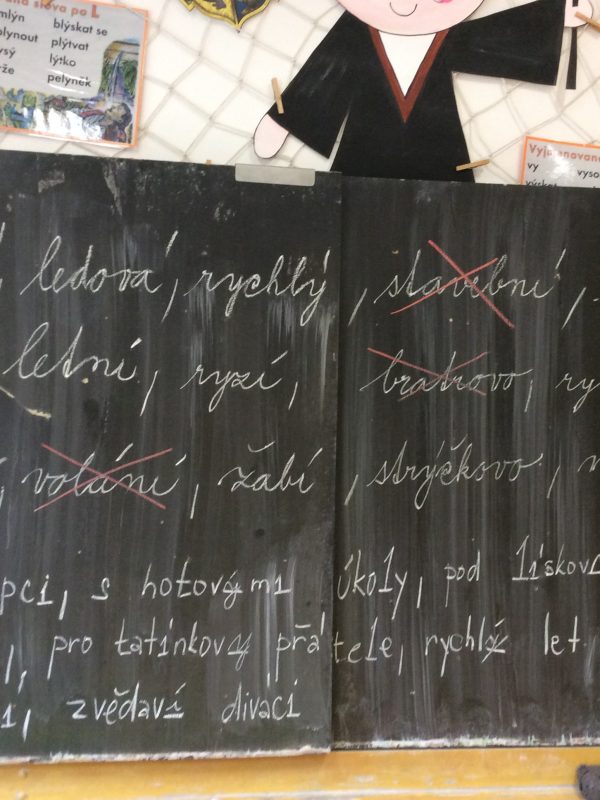 slova po L
mlýn blýskat se
plynout plýtvat
lýtko
pelyněk
Vyjmenovaná
vy vyso
, ledová, rychlý, stavební,
letní, ryzí, bratrovo, ry
, volání, žabí, strýčkovo,
pci, s hotovými úkoly, pod lískov
, pro tatínkovy přátele, rychlý let
i, zvědaví diváci